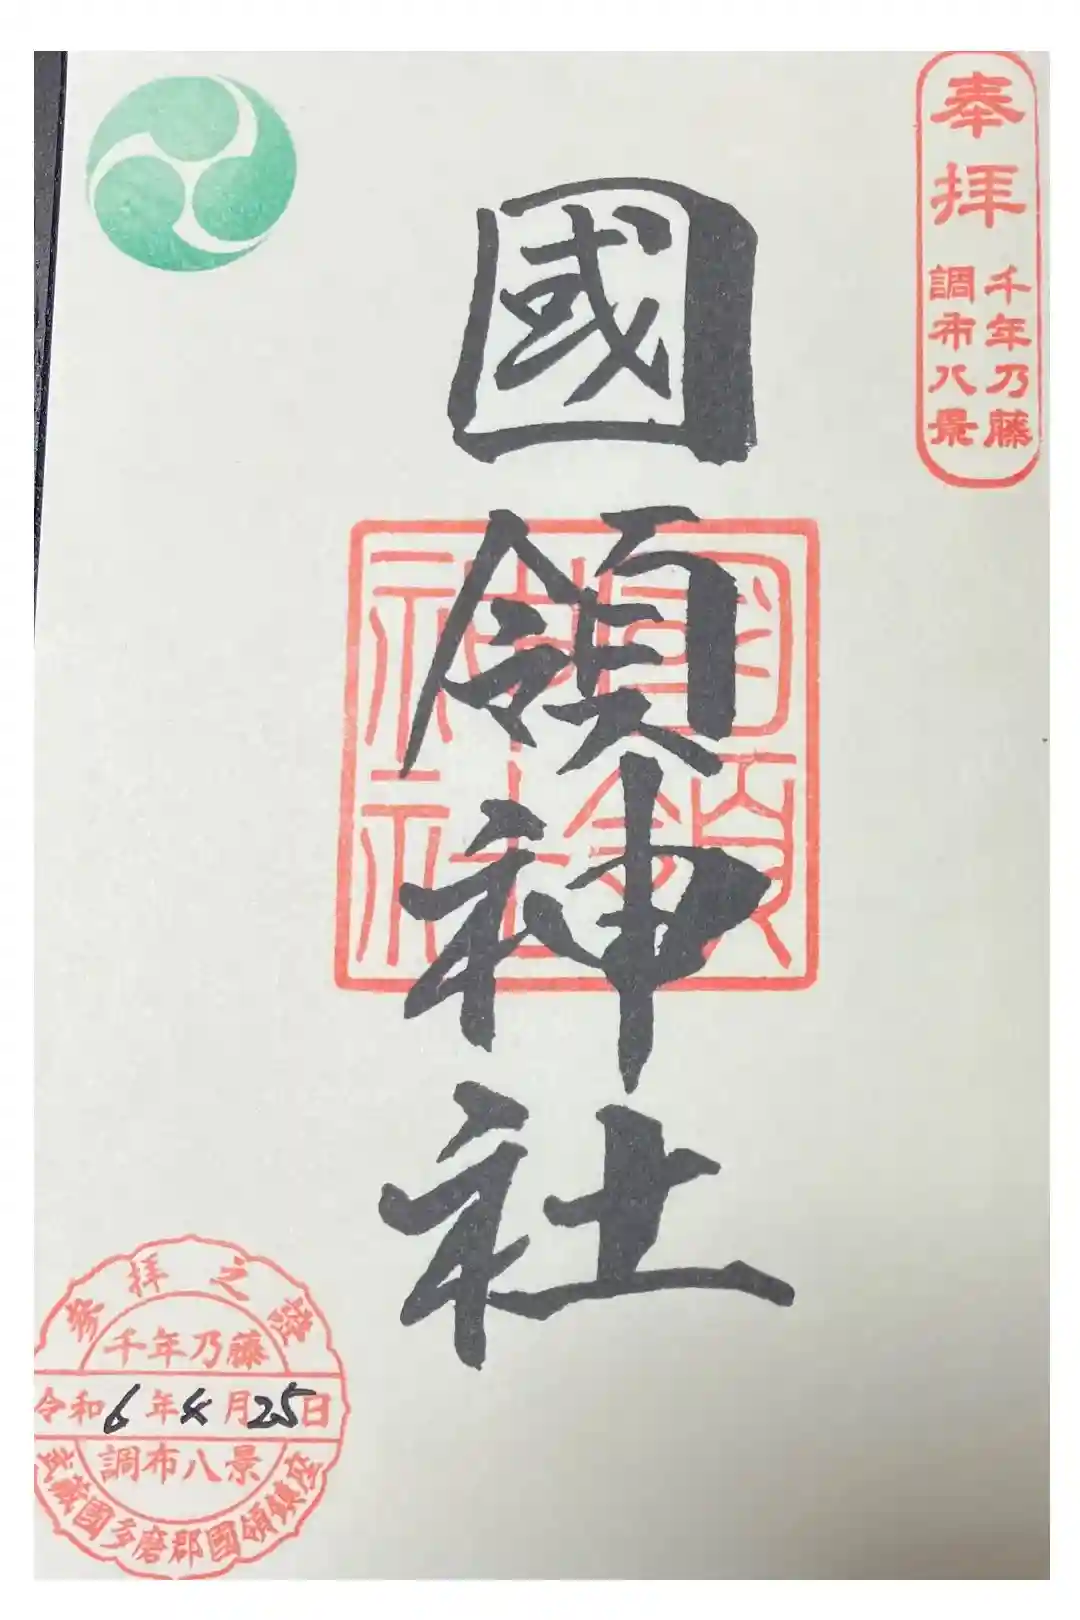 奉拝
千年乃藤
調布八景
國領神社
國領
神社
参拝之證
千年乃藤
令和6年4月25日
調布八景
武蔵國多磨郡國領鎮座